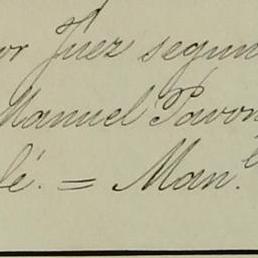 or Juez segun
Manuel Pavon
lé. = Man.l